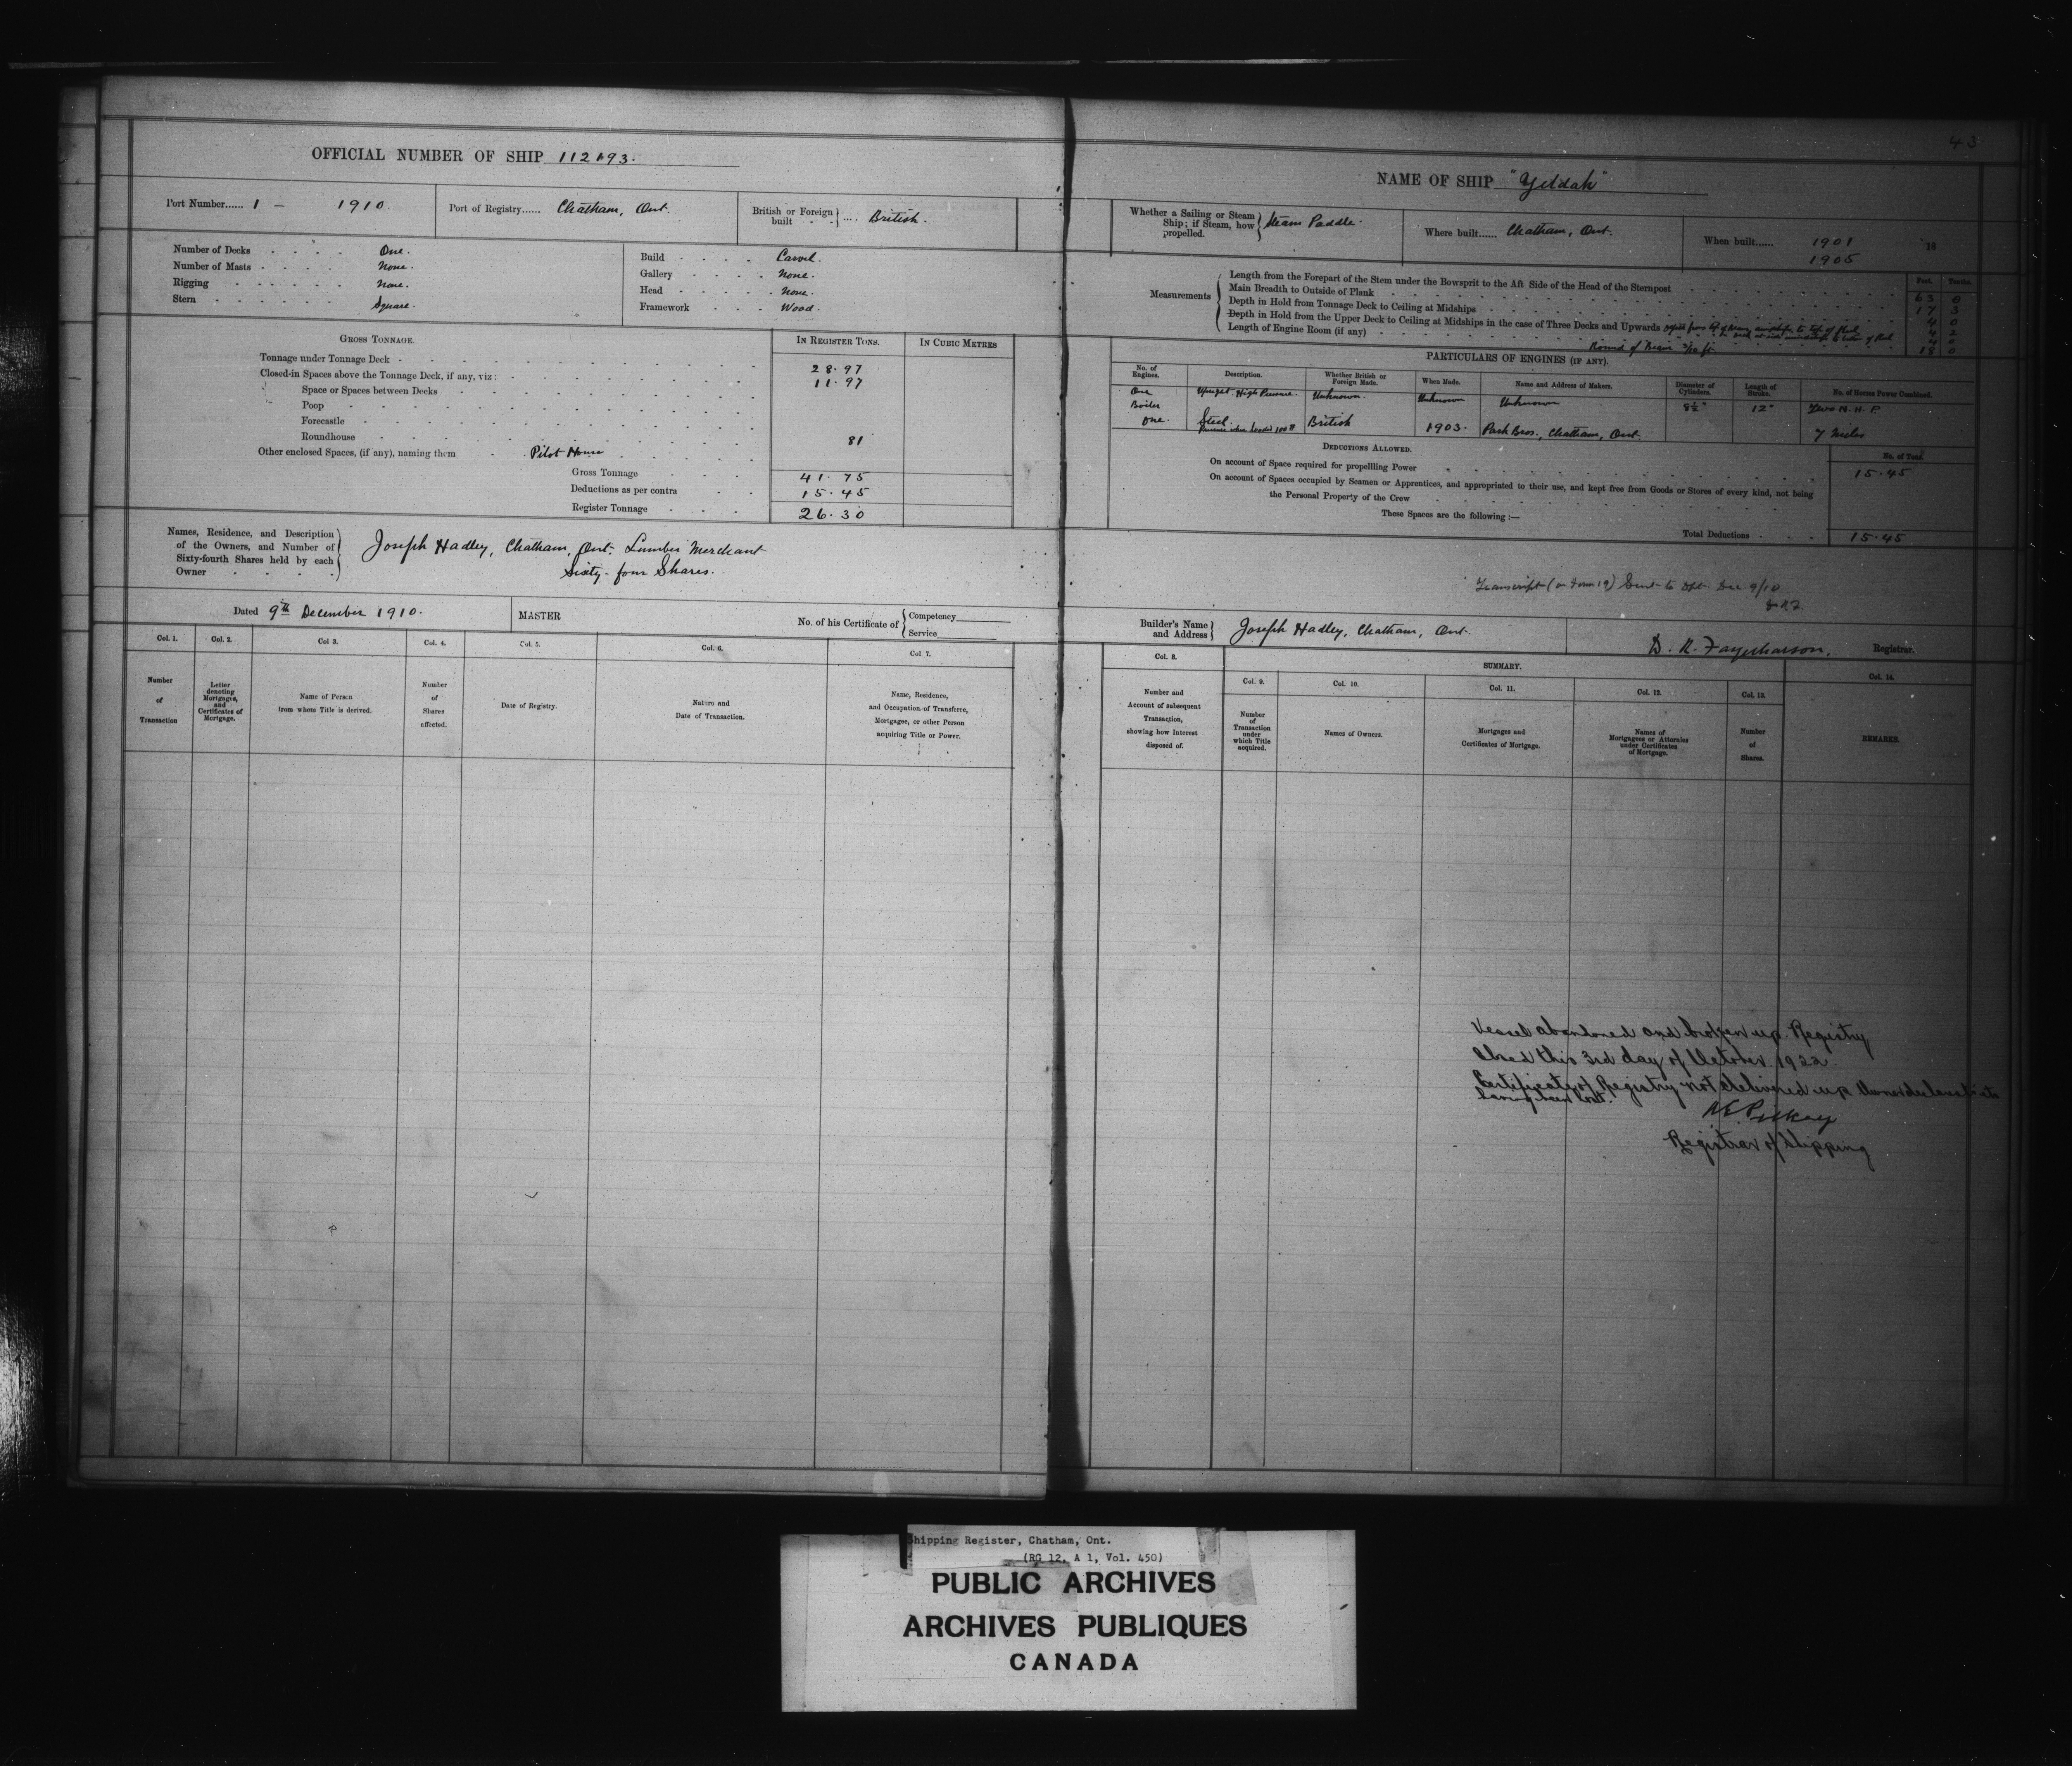 43
OFFICIAL NUMBER OF SHIP 112193.
Port Number...... 1 - 1910.
Port of Registry...... Chatham, Ont.
British or Foreign built .... British.
Number of Decks One.
Number of Masts None.
Rigging None.
Stern Square.
Build Carvel.
Gallery None.
Head None.
Framework Wood.
GROSS TONNAGE.
IN REGISTER TONS.
IN CUBIC METRES
Tonnage under Tonnage Deck 28.97
Closed-in Spaces above the Tonnage Deck, if any, viz: 11.97
Space or Spaces between Decks
Poop
Forecastle
Roundhouse 81
Other enclosed Spaces, (if any), naming them Pilot House
Gross Tonnage 41.75
Deductions as per contra 15.45
Register Tonnage 26.30
Names, Residence, and Description
of the Owners, and Number of
Sixty-fourth Shares held by each
Owner
Joseph Hadley, Chatham, Ont. Lumber Merchant
Sixty-four Shares.
Dated 9th December 1910.
MASTER
No. of his Certificate of Competency
Service
Col. 1. Col. 2. Col 3. Col. 4. Col. 5. Col. 6. Col 7.
Number of Transaction
Letter denoting Mortgages, and Certificates of Mortgage.
Name of Person from whom Title is derived.
Number of Shares affected.
Date of Registry.
Nature and Date of Transaction.
Name, Residence, and Occupation of Transferee, Mortgagee, or other Person acquiring Title or Power.
NAME OF SHIP "Yeldah"
Whether a Sailing or Steam Ship; if Steam, how propelled. Steam Paddle.
Where built...... Chatham, Ont.
When built...... 1901 18
1905
Measurements
Feet. Tenths.
Length from the Forepart of the Stem under the Bowsprit to the Aft Side of the Head of the Sternpost 63 0
Main Breadth to Outside of Plank 17 3
Depth in Hold from Tonnage Deck to Ceiling at Midships 4 0
Depth in Hold from the Upper Deck to Ceiling at Midships in the case of Three Decks and Upwards 4 2
Length of Engine Room (if any) 4 0
Round of Beam 18 0
PARTICULARS OF ENGINES (IF ANY).
No. of Engines. Description. Whether British or Foreign Made. When Made. Name and Address of Makers. Diameter of Cylinders. Length of Stroke. No. of Horses Power Combined.
One Upright High Pressure. Unknown. Unknown Unknown 8½" 12" Two N. H. P.
Boiler
One. Steel. British 1903. Park Bros., Chatham, Ont. 7 Miles
DEDUCTIONS ALLOWED.
No. of Tons.
On account of Space required for propelling Power 15.45
On account of Spaces occupied by Seamen or Apprentices, and appropriated to their use, and kept free from Goods or Stores of every kind, not being
the Personal Property of the Crew
These Spaces are the following:—
Total Deductions 15.45
Transcript (on form 19) Sent to Dept. Dec 9/10
Builder's Name and Address Joseph Hadley, Chatham, Ont.
Registrar.
SUMMARY.
Col. 8. Col. 9. Col. 10. Col. 11. Col. 12. Col. 13. Col. 14.
Number and Account of subsequent Transaction, showing how Interest disposed of.
Number of Transaction under which Title acquired.
Names of Owners.
Mortgages and Certificates of Mortgage.
Names of Mortgagees or Attornies under Certificates of Mortgage.
Number of Shares.
REMARKS.
Vessel abandoned and broken up. Registry
Closed this 3rd day of October 1922.
Certificate of Registry not delivered up
having been lost.
Registrar of Shipping
Shipping Register, Chatham, Ont.
(RG 12, A 1, Vol. 450)
PUBLIC ARCHIVES
ARCHIVES PUBLIQUES
CANADA